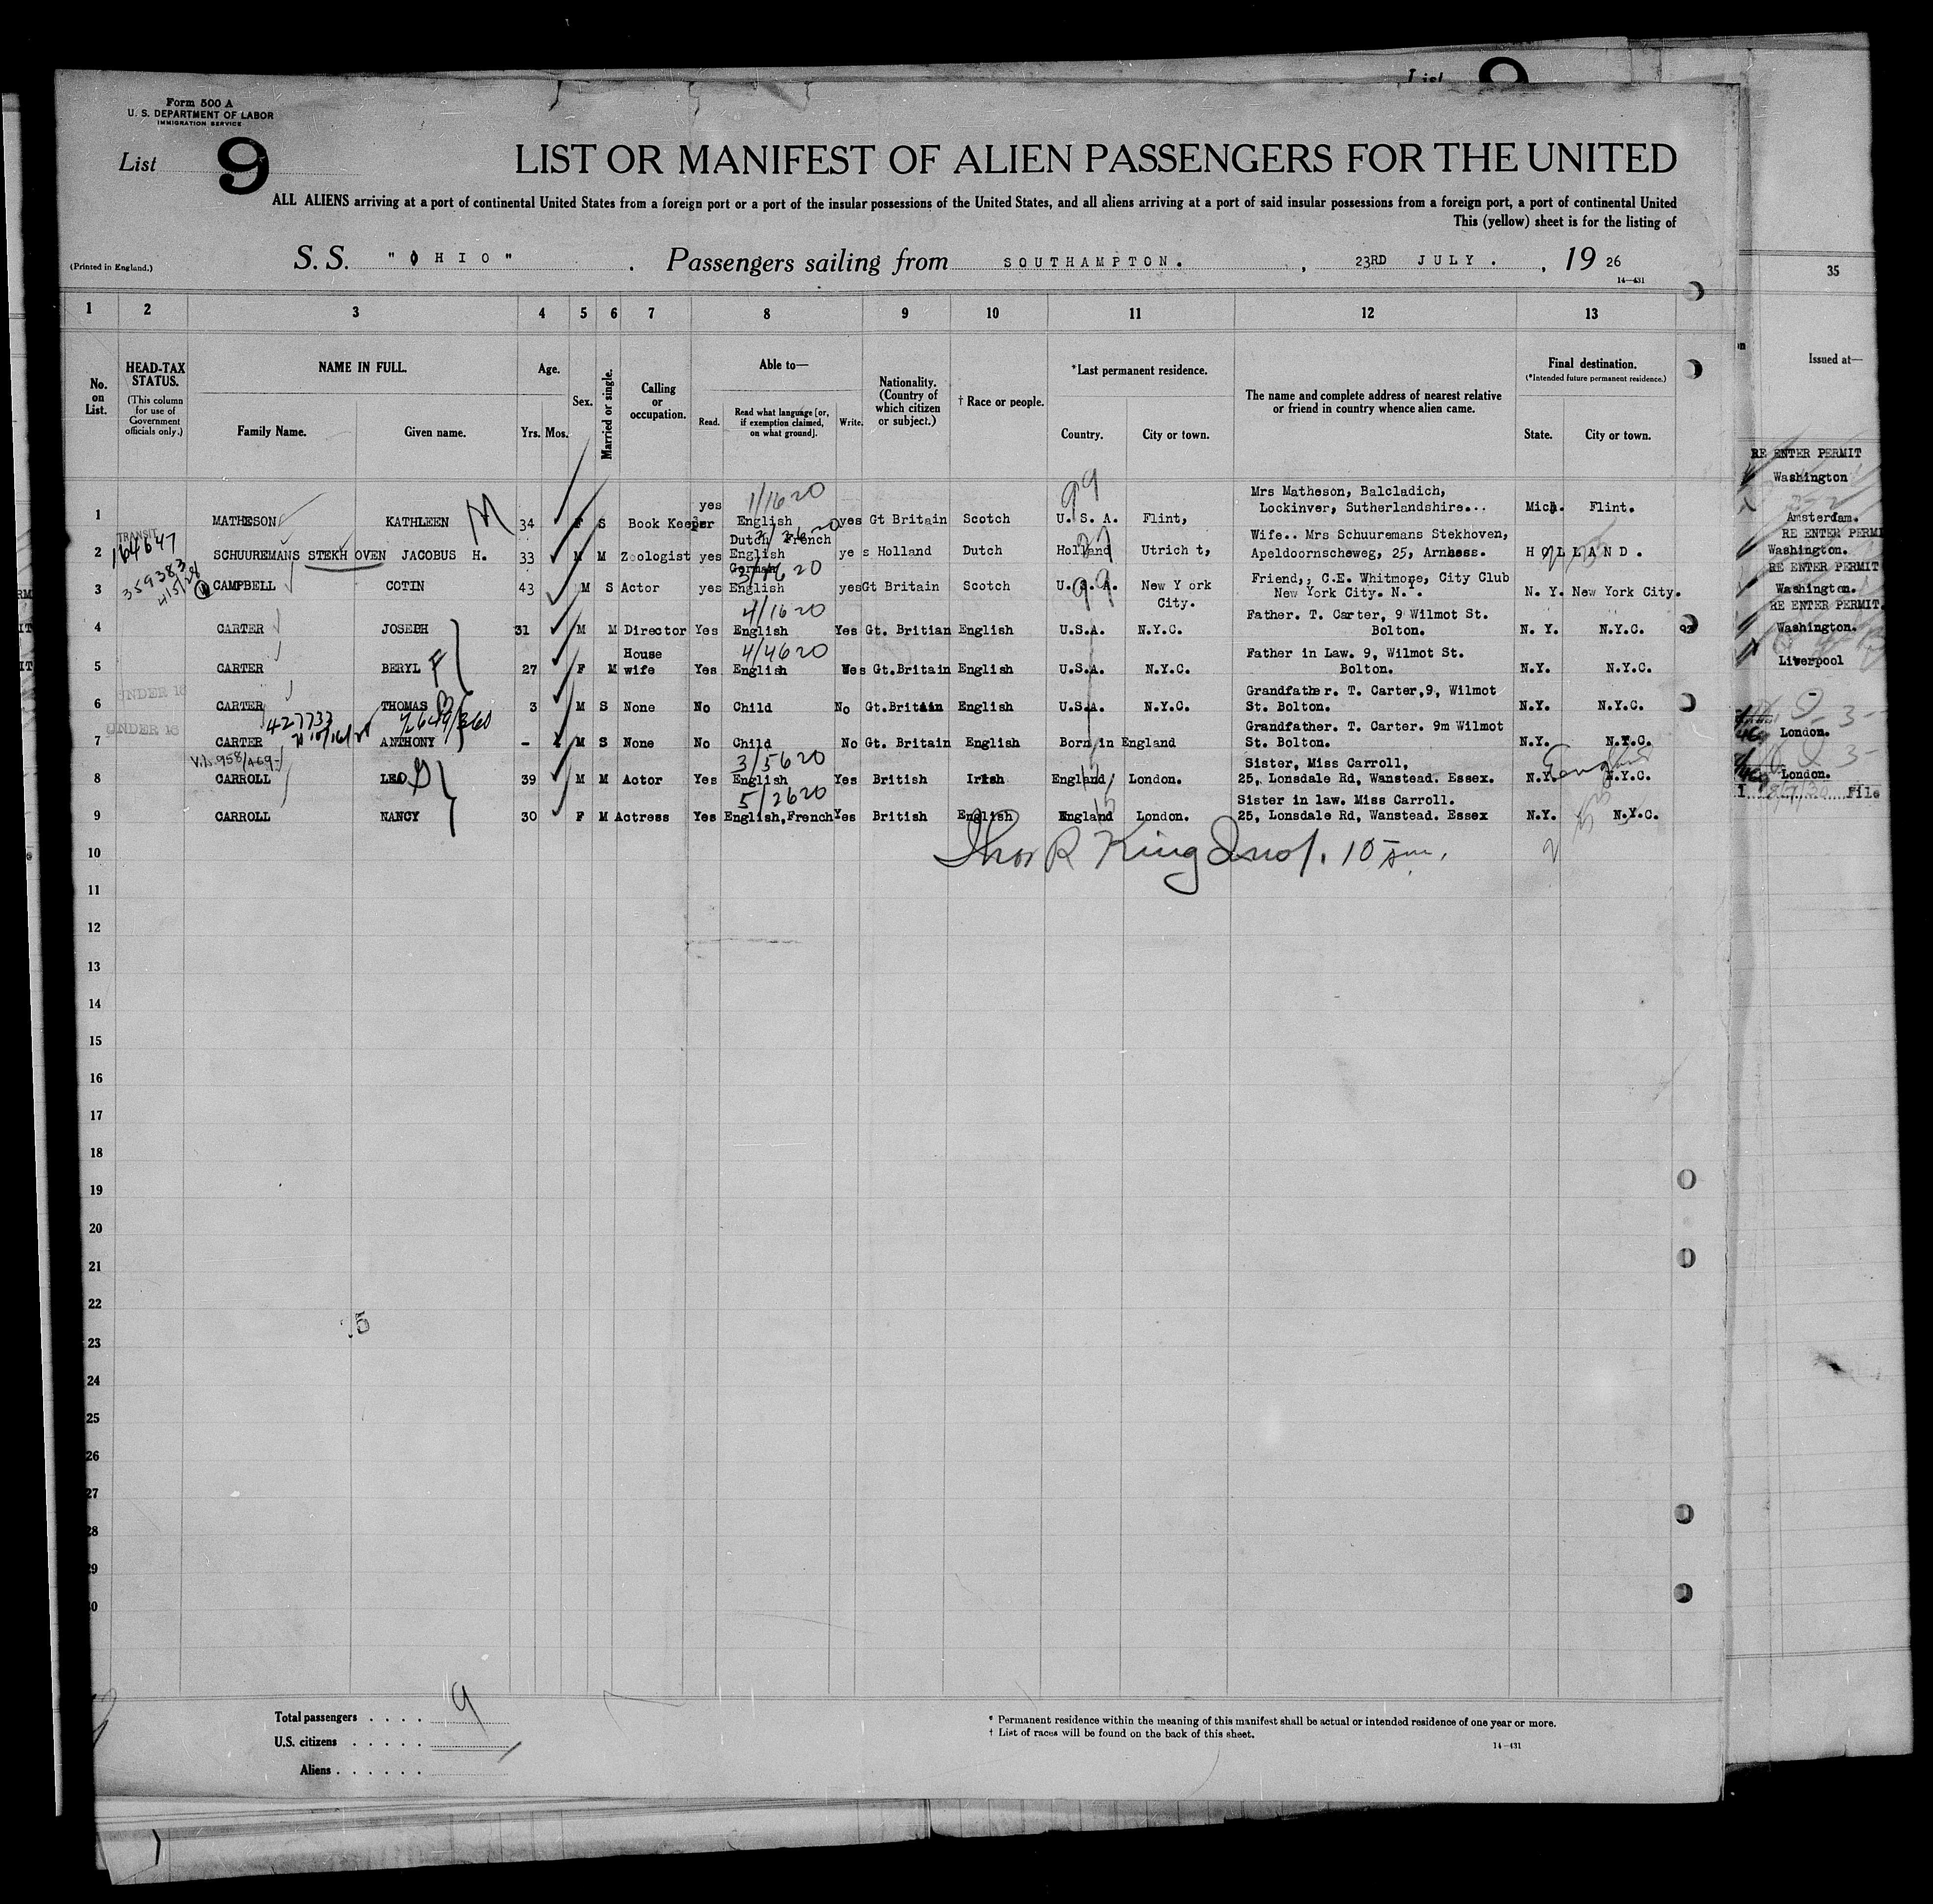 List 9
Form 500 A
U. S. DEPARTMENT OF LABOR
IMMIGRATION SERVICE
List 9
LIST OR MANIFEST OF ALIEN PASSENGERS FOR THE UNITED
ALL ALIENS arriving at a port of continental United States from a foreign port or a port of the insular possessions of the United States, and all aliens arriving at a port of said insular possessions from a foreign port, a port of continental United
This (yellow) sheet is for the listing of
(Printed in England.)
S. S. "OHIO" . Passengers sailing from SOUTHAMPTON. , 23RD JULY. , 19 26
14—431
1 2 3 4 5 6 7 8 9 10 11 12 13
No. on List.
HEAD-TAX STATUS.
(This column for use of Government officials only.)
NAME IN FULL.
Family Name. Given name.
Age.
Yrs. Mos.
Sex.
Married or single.
Calling or occupation.
Able to—
Read. Read what language [or, if exemption claimed, on what ground]. Write.
Nationality. (Country of which citizen or subject.)
† Race or people.
*Last permanent residence.
Country. City or town.
The name and complete address of nearest relative or friend in country whence alien came.
Final destination.
(*Intended future permanent residence.)
State. City or town.
1 MATHESON KATHLEEN M 34 F S Book Keeper yes 1/1620 English yes Gt Britain Scotch 99 U. S. A. Flint, Mrs Matheson, Balcladich, Lockinver, Sutherlandshire... Mich. Flint.
TRANSIT
164647
2 SCHUUREMANS STEKH OVEN JACOBUS H. 33 M M Zoologist yes Dutch French English German ye s Holland Dutch Holland Utrich t, Wife.. Mrs Schuuremans Stekhoven, Apeldoornscheweg, 25, Arnhess. HOLLAND.
359383
4/5/28
3 CAMPBELL COTIN 43 M S Actor yes English yes Gt Britain Scotch 99 U. S. A. New Y ork City. Friend,; C.E. Whitmore, City Club New York City. N.Y. N. Y. New York City.
4 CARTER JOSEPH 31 M M Director Yes 4/1620 English Yes Gt. Britian English U.S.A. N.Y.C. Father. T. Carter, 9 Wilmot St. Bolton. N. Y. N.Y.C.
5 CARTER BERYL F 27 F M House wife Yes 4/4620 English Yes Gt.Britain English U.S.A. N.Y.C. Father in Law. 9, Wilmot St. Bolton. N.Y. N.Y.C.
UNDER 16
6 CARTER THOMAS 3 M S None No Child No Gt.Britain English U.S.A. N.Y.C. Grandfather. T. Carter,9, Wilmot St. Bolton. N.Y. N.Y.C.
UNDER 16
427733
7 CARTER ANTHONY - M S None No Child No Gt. Britain English Born in England Grandfather. T. Carter. 9m Wilmot St. Bolton. N.Y. N.Y.C.
8 CARROLL LEO G 39 M M Actor Yes 3/5620 English Yes British Irish England London. Sister, Miss Carroll, 25, Lonsdale Rd, Wanstead. Essex. N.Y. N.Y.C.
9 CARROLL NANCY 30 F M Actress Yes 5/2620 English,French Yes British English England London. Sister in law. Miss Carroll. 25, Lonsdale Rd, Wanstead. Essex N.Y. N.Y.C.
10
11
12
13
14
15
16
17
18
19
20
21
22
23
24
25
26
27
28
29
30
Total passengers . . . . 9
U.S. citizens . . . . .
Aliens . . . . . .
* Permanent residence within the meaning of this manifest shall be actual or intended residence of one year or more.
† List of races will be found on the back of this sheet.
14—431
35
Issued at—
RE ENTER PERMIT
Washington
Amsterdam.
RE ENTER PERMI
Washington.
RE ENTER PERMIT
Washington.
RE ENTER PERMIT.
Washington.
Liverpool
London.
London.
File